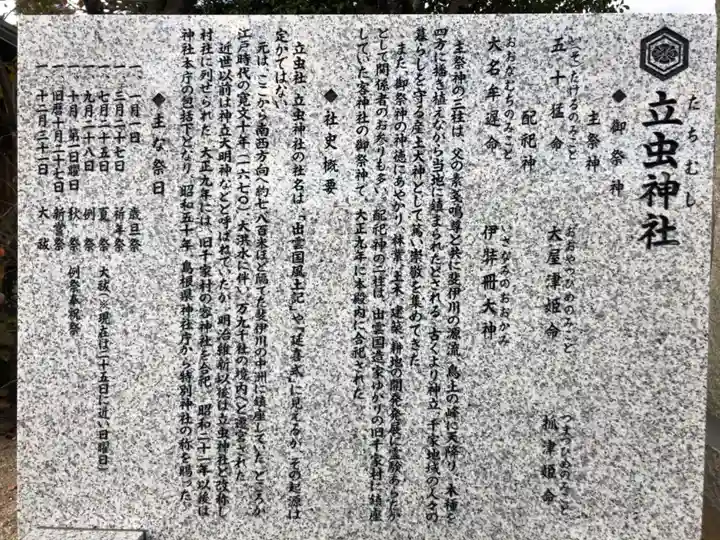 たちむし
立虫神社
◆御祭神
主祭神
いそたけるのみこと
五十猛命
おおやつひめのみこと
大屋津姫命
つまつひめのみこと
抓津姫命
配祀神
おおなむちのみこと
大名牟遅命
いざなみのおおかみ
伊弉冊大神
主祭神の三柱は、父の素戔嗚尊と共に斐伊川の源流、鳥上の峰に天降り、木種を
四方に播き植えながら当地に鎮まられたとされる。古くより神立、千家地域の人々の
暮らしを守る産土大神として篤い崇敬を集めてきた。
また、御祭神の神徳にあやかり、林業、土木、建築、耕地の開発発展に霊験あらたか
として関係者のお参りも多い。配祀神の二柱は、出雲国造家ゆかりの旧千家村に鎮座
していた客神社の御祭神で、大正九年に本殿内に合祀された。
◆社史概要
立虫社、立虫神社の社名は、『出雲国風土記』や『延喜式』に見えるが、その起源は
定かではない。
元は、ここから南西方向へ約七八百米ほど隔てた斐伊川の中洲に鎮座していた。ところが
江戸時代の寛文十年(一六七〇)、大洪水に伴い、万九千社の境内へと遷宮された。
近世以前は神立大明神などと呼ばれていたが、明治維新以後は立虫神社と改称し
村社に列せられた。大正九年には、旧千家村の客神社を合祀。昭和二十一年以後は
神社本庁の包括下となり、昭和五十年、島根県神社庁から特別神社の称を賜った。
◆主な祭日
一、一月一日 歳旦祭
一、三月二十七日 祈年祭
一、七月二十五日 夏祭 大祓(※現在は二十五日に近い日曜日)
一、九月二十八日 例祭
一、十月第一日曜日 秋祭 例祭奉祝祭
一、旧暦十月二十七日 新嘗祭
一、十二月三十一日 大祓